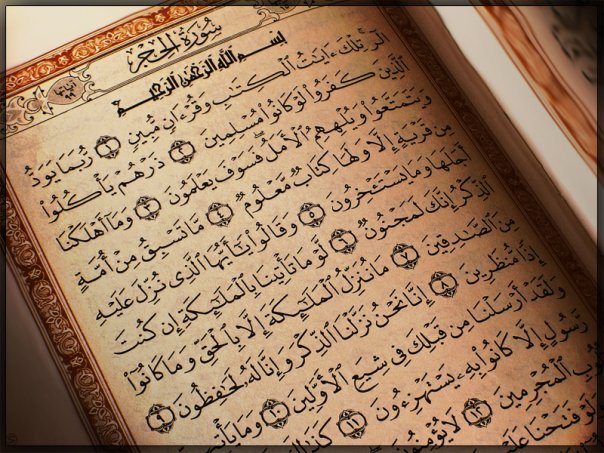 سُورَةُ الحِجْرِ
بِسْمِ ٱللَّهِ ٱلرَّحْمَٰنِ ٱلرَّحِيمِ
الٓر تِلْكَ ءَايَٰتُ ٱلْكِتَٰبِ وَقُرْءَانٍ مُّبِينٍ ١ رُّبَمَا يَوَدُّ
ٱلَّذِينَ كَفَرُوا۟ لَوْ كَانُوا۟ مُسْلِمِينَ ٢ ذَرْهُمْ يَأْكُلُوا۟
وَيَتَمَتَّعُوا۟ وَيُلْهِهِمُ ٱلْأَمَلُ ۖ فَسَوْفَ يَعْلَمُونَ ٣ وَمَآ أَهْلَكْنَا
مِن قَرْيَةٍ إِلَّا وَلَهَا كِتَابٌ مَّعْلُومٌ ٤ مَّا تَسْبِقُ مِنْ أُمَّةٍ
أَجَلَهَا وَمَا يَسْتَـْٔخِرُونَ ٥ وَقَالُوا۟ يَٰٓأَيُّهَا ٱلَّذِى نُزِّلَ عَلَيْهِ
ٱلذِّكْرُ إِنَّكَ لَمَجْنُونٌ ٦ لَّوْ مَا تَأْتِينَا بِٱلْمَلَٰٓئِكَةِ إِن كُنتَ
مِنَ ٱلصَّٰدِقِينَ ٧ مَا نُنَزِّلُ ٱلْمَلَٰٓئِكَةَ إِلَّا بِٱلْحَقِّ وَمَا كَانُوٓا۟
إِذًا مُّنظَرِينَ ٨ إِنَّا نَحْنُ نَزَّلْنَا ٱلذِّكْرَ وَإِنَّا لَهُۥ لَحَٰفِظُونَ ٩
وَلَقَدْ أَرْسَلْنَا مِن قَبْلِكَ فِى شِيَعِ ٱلْأَوَّلِينَ ١٠ وَمَا يَأْتِ
رَّسُولٍ إِلَّا كَانُوا۟ بِهِۦ يَسْتَهْزِءُونَ ١١ كَذَٰ
وبِ ٱلْمُجْرِمِينَ ١٢ لَا يُؤْمِنُونَ
وَلَوْ فَتَحْنَا عَلَيْ